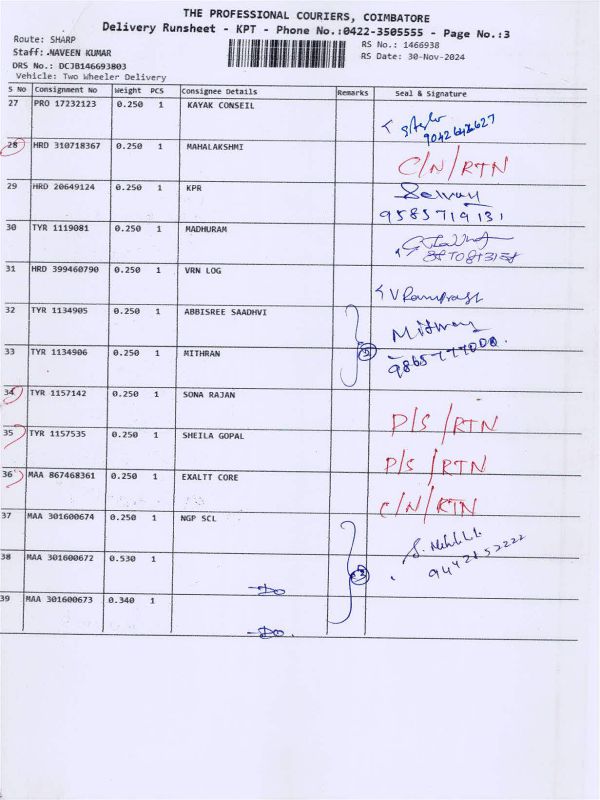 THE PROFESSIONAL COURIERS, COIMBATORE
Delivery Runsheet - KPT - Phone No.:0422-3505555 - Page No.:3
Route: SHARP
RS No.: 1466938
Staff: NAVEEN KUMAR
RS Date: 30-Nov-2024
DRS No.: DCJB146693803
Vehicle: Two Wheeler Delivery
S No Consignment No Weight PCS Consignee Details Remarks Seal & Signature
27 PRO 17232123 0.250 1 KAYAK CONSEIL
28 HRD 310718367 0.250 1 MAHALAKSHMI C/N/RTN
29 HRD 20649124 0.250 1 KPR Selvam
9585719131
30 TYR 1119081 0.250 1 MADHURAM
31 HRD 399460790 0.250 1 VRN LOG V Ramprasf
32 TYR 1134905 0.250 1 ABBISREE SAADHVI
33 TYR 1134906 0.250 1 MITHRAN
34 TYR 1157142 0.250 1 SONA RAJAN D/S/RTN
35 TYR 1157535 0.250 1 SHEILA GOPAL D/S/RTN
36 MAA 867468361 0.250 1 EXALTT CORE C/N/RTN
37 MAA 301600674 0.250 1 NGP SCL
38 MAA 301600672 0.530 1 -Do 2
39 MAA 301600673 0.340 1 -Do.